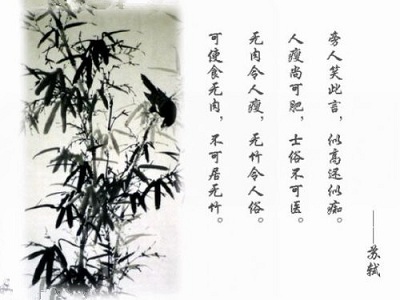 可使食无肉，不可居无竹。
无肉令人瘦，无竹令人俗。
人瘦尚可肥，士俗不可医。
旁人笑此言，似高还似痴。
——苏轼